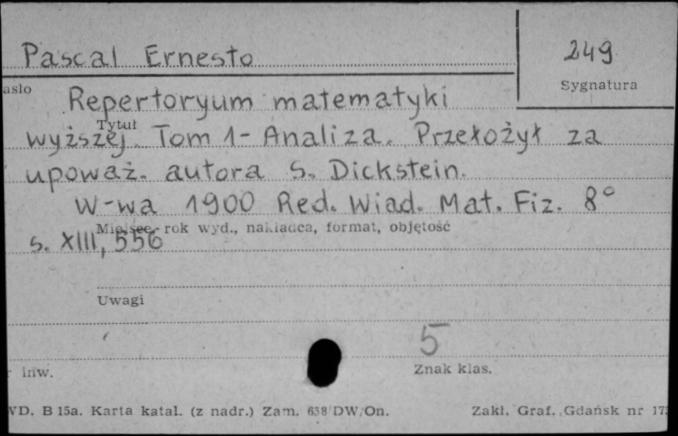 Pascal Ernesto
249
asło
Sygnatura
Repertoryum matematyki
Tytuł
wyższej. Tom 1 - Analiza. Przełożył za
upoważ. autora S. Dickstein.
W-wa 1900 Red. Wiad. Mat. Fiz. 8°
Miejsce, rok wyd., nakładca, format, objętość
s. XIII, 556
Uwagi
5
inw.
Znak klas.
WD. B 15a. Karta katal. (z nadr.) Zam. 638 DW/On.
Zakł. Graf. Gdańsk nr 17